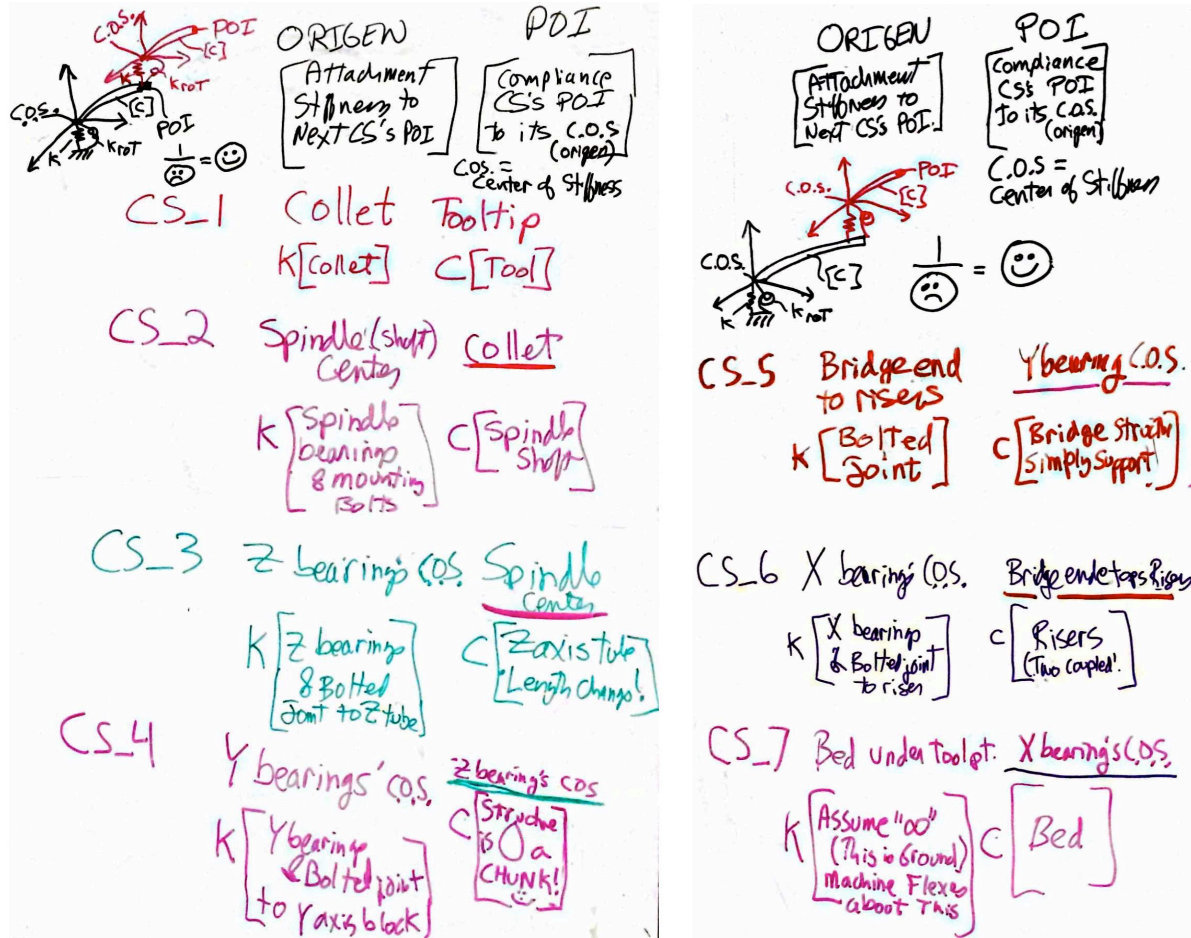 C.O.S.
POI
[C]
K
KROT
C.O.S.
[C]
POI
K
KROT
1
=
ORIGEN
Attachment
Stiffness to
Next CS's POI
POI
Compliance
CS's POI
to its C.O.S
(origen)
C.O.S. =
Center of Stiffness
CS_1
Collet
Tooltip
K[Collet]
C[Tool]
CS_2
Spindle (shaft)
Center
Collet
K [Spindle
bearings
& mounting
Bolts]
C [Spindle
Shaft]
CS_3
Z bearing's C.O.S.
Spindle
Center
K [Z bearings
& Bolted
Joint to Z tube]
C [Z axis tube
Length Change!]
CS_4
Y bearings' C.O.S.
Z bearing's COS
K [Y bearings
& Bolted joint
to Y axis block]
C [Structure
is a
CHUNK!]
ORIGEN
Attachment
Stiffness to
Next CS's POI.
POI
Compliance
CS's POI
To its C.O.S.
(origen)
C.O.S =
Center of Stiffness
C.O.S.
POI
[C]
C.O.S.
[C]
K
KROT
1
=
CS_5
Bridge end
to risers
Y bearing C.O.S.
K [Bolted
Joint]
C [Bridge Structure
Simply Support]
CS_6
X bearing's C.O.S.
Bridge end e tops Risers
K [X bearings
& Bolted joint
to riser]
C [Risers
(Two coupled!]
CS_7
Bed under toolpt.
X bearing's C.O.S.
K [Assume "∞"
(This is Ground)
machine Flexes
about This]
C [Bed]